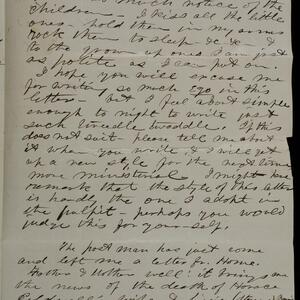 much notice of the
children. I kiss all the little
ones hold them in my arms
rock them to sleep &c &c &
to the grown up ones I am just
as polite as I can put on.
I hope you will excuse me
for writing so much ego in this
letter – but I feel about simple
enough to night to write just
such twaddle. If this
does not suit please tell me about
it when you write & I will get
up a new style for the next time
more ministerial. I might here
remark that the style of this letter
is hardly the one I adopt in
the pulpit – perhaps you would
judge this for yourself.
The post man has just come
and left me a letter for Home.
Father & Mother well: it brings me
the news of the death of Horace